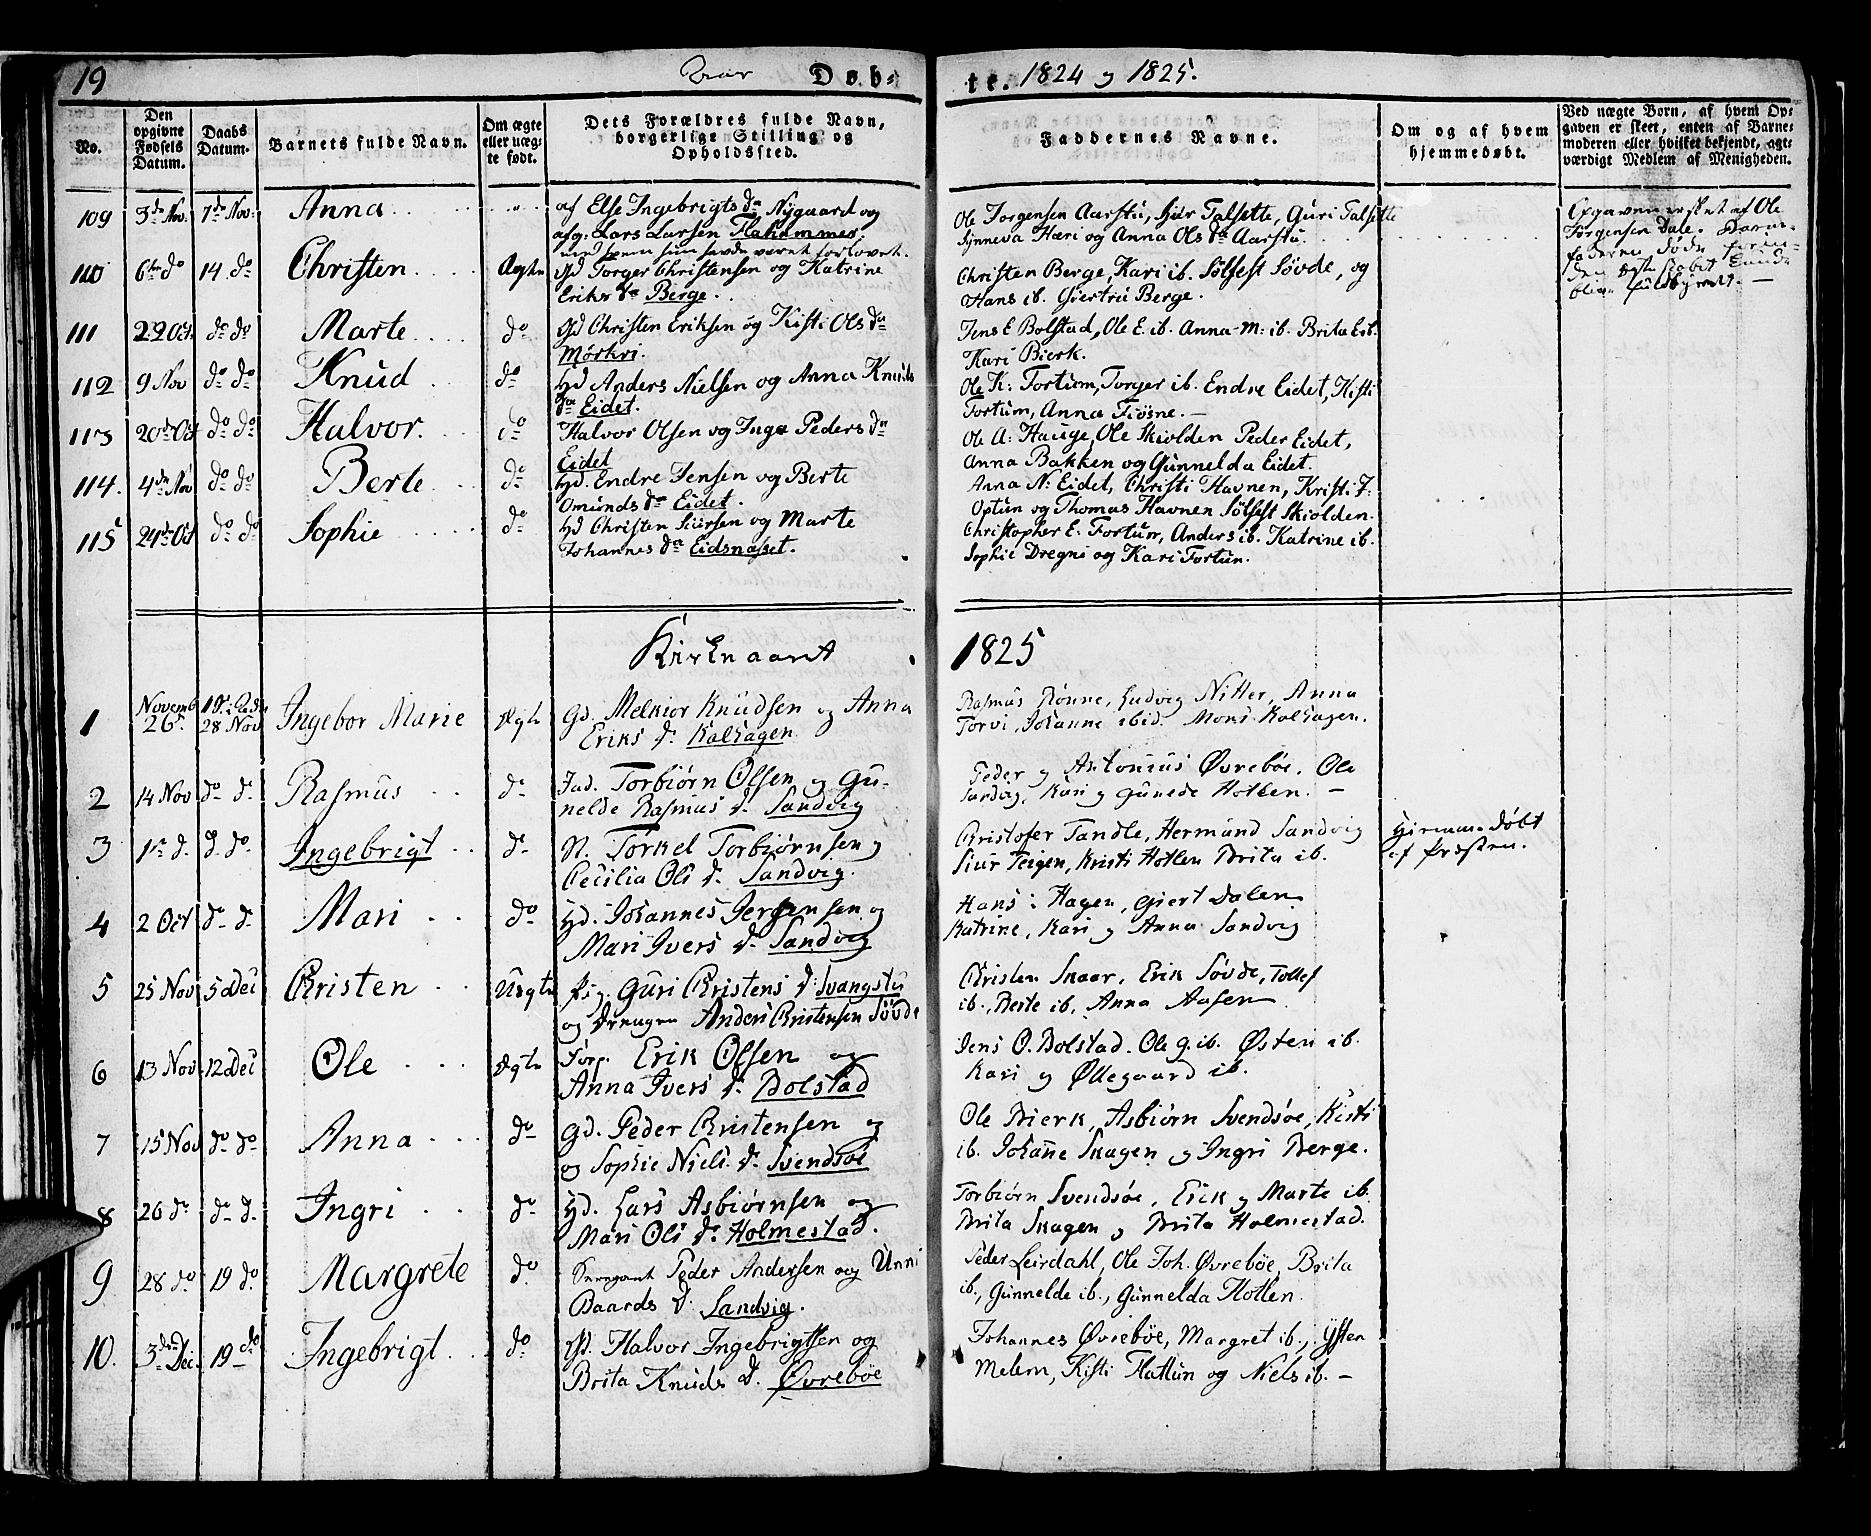 19
Aar Døb-
te. 1824 og 1825.
No.
Den opgivne Fødsels Datum.
Daabs Datum.
Barnets fulde Navn.
Om ægte eller uægte født.
Dets Forældres fulde Navn, borgerlige Stilling og Opholdssted.
Faddernes Navne.
Om og af hvem hjemmedøbt.
Ved uægte Born, af hvem Opgaven er skeet, enten af Barnemoderen eller hvilket bekjendt, agtværdigt Medlem af Menigheden.
109 3de Nov. 7de Nov. Anna
af Else Ingebrigts da Nygaard og
afg: Lars Larsen Flahammer.
med hvem hun havde været forlovet.
Ole Jorgensen Aarstu, Siur Talsette, Guri Talsette
Synneva Hæri og Anna Ols da Aarstu.
Opgaven er skeet af Ole
Jørgensen Dale.
110 6te do 14. do Christen Ægte
Gd Torger Christensen og Katrine
Eriks da Berge.
Christen Berge, Kari ib. Sølfest Søvde, og
Hans ib. Giertru Berge.
111 22 Oct. do do Marte do
Gd Christen Eriksen og Kisti Ols da
Mørkri.
Jens E Bolstad, Ole E. ib. Anna M: ib. Brita E ib.
Kari Bierk.
112 9 Nov do do Knud do
Hd Anders Nielsen og Anna Knuds
da Eidet.
Ole K: Fortum, Torger ib. Endre Eidet, Kisti
Fortum, Anna Fiøsne. —
113 20de Oct do do Halvor. do
Halvor Olsen og Inga Peders da
Eidet
Ole A: Hauge, Ole Skiolden Peder Eidet,
Anna Bakken og Gunnelda Eidet.
114. 4de Nov do do Berte do
Hd. Endre Jensen og Berte
Omunds da Eidet.
Anna N: Eidet, Christi Havnen, Kristi J:
Optun og Thomas Havnen Sølfest Skiolden.
115 24de Oct do do Sophie do
Hd Christen Siursen og Marte
Johannes da Eidsnæsset.
Christopher E. Fortun, Anders ib. Katrine ib.
Sophie Dregni og Kari Fortun.
Kirkeaaret 1825
1 Novemb 26. 28 Nov Ingebor Marie Ægte
Gd. Melkior Knudsen og Anna
Eriks d. Kalhagen
Rasmus Rønne, Ludvig Nitter, Anna
Torvi, Johanne ibid. Mons Kalhagen.
2 14 Nov do d. Rasmus do
Ind. Torbiørn Olsen og Gu-
nelde Rasmus d. Sandvig
Peder og Antonius Øvrebøe. Ole
Sandvig, Kari og Gunede Hotlen. —
3 1ste d. d. do. Ingebrigt do
N. Torkel Torbiørnsen og
Cecilia Ols d. Sandvig.
Christofer Tandle, Hermund Sandvig
Siur Teigen, Kristi Hotlen Brita ib.
Hiemme døbt
af Præsten.
4 2 Oct do d. Mari do
Hd. Johannes Jergensen og
Mari Ivers d. Sandvig
Hans i Hagen, Giert Dalen
Katrine, Kari og Anna Sandvig
5 25 Nov 5 Dec Christen Uægte
Pig. Guri Christens d. Svangstu
og Drengen Anders Christensen Søvde
Christen Skaar, Erik Søvde, Tollef
ib., Berte ib. Anna Aasen
6 13 Nov 12 Dec Ole Ægte
Forp. Erik Olsen og
Anna Ivers d. Bolstad
Jens O. Bolstad. Ole G. ib. Østen ib.
Kari og Øllegaard ib.
7 15 Nov do do Anna do
Gd. Peder Christensen og
og Sophie Niels d. Svendsøe
Ole Bierk, Asbiørn Svendsøe, Kisti
ib. Johanne Skagen og Ingri Berge.
8 26 do do d. Ingri do
Hd. Lars Asbiørnsen og
Mari Ols d. Holmestad.
Torbiørn Svendsøe, Erik og Marte ib.
Brita Skagen og Brita Holmestad.
9 28 do 19 do Margrete do
Sergeant Peder Andersen og Unni
Baards d. Sandvig.
Peder Leirdahl, Ole Joh. Øvrebøe, Brita
ib., Gunnelde ib., Gunnelda Hotlen.
10. 3de Dec. 19 do Ingebrigt do
Gd. Halvor Ingebrigtsen og
Brita Knuds d. Øvrebøe
Johannes Øvrebøe, Margret ib., Østen
Melem, Kisti Flattun og Niels ib. —